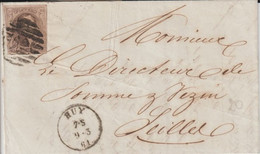 Monsieur
Le Directeur de
Somme & Vezin
Seilles
HUY
9-3
61